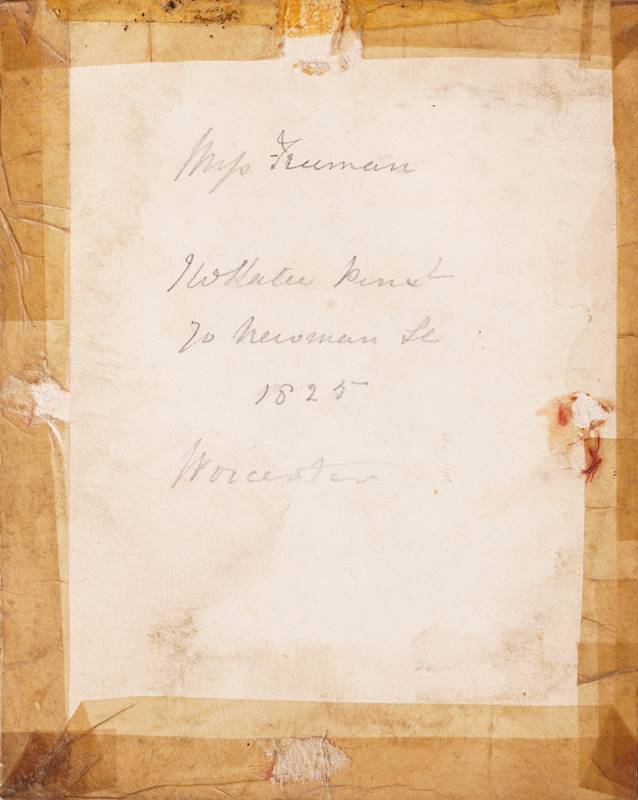 Miss Freeman
Slater pinxt
70 Newman St
1825
Worcester